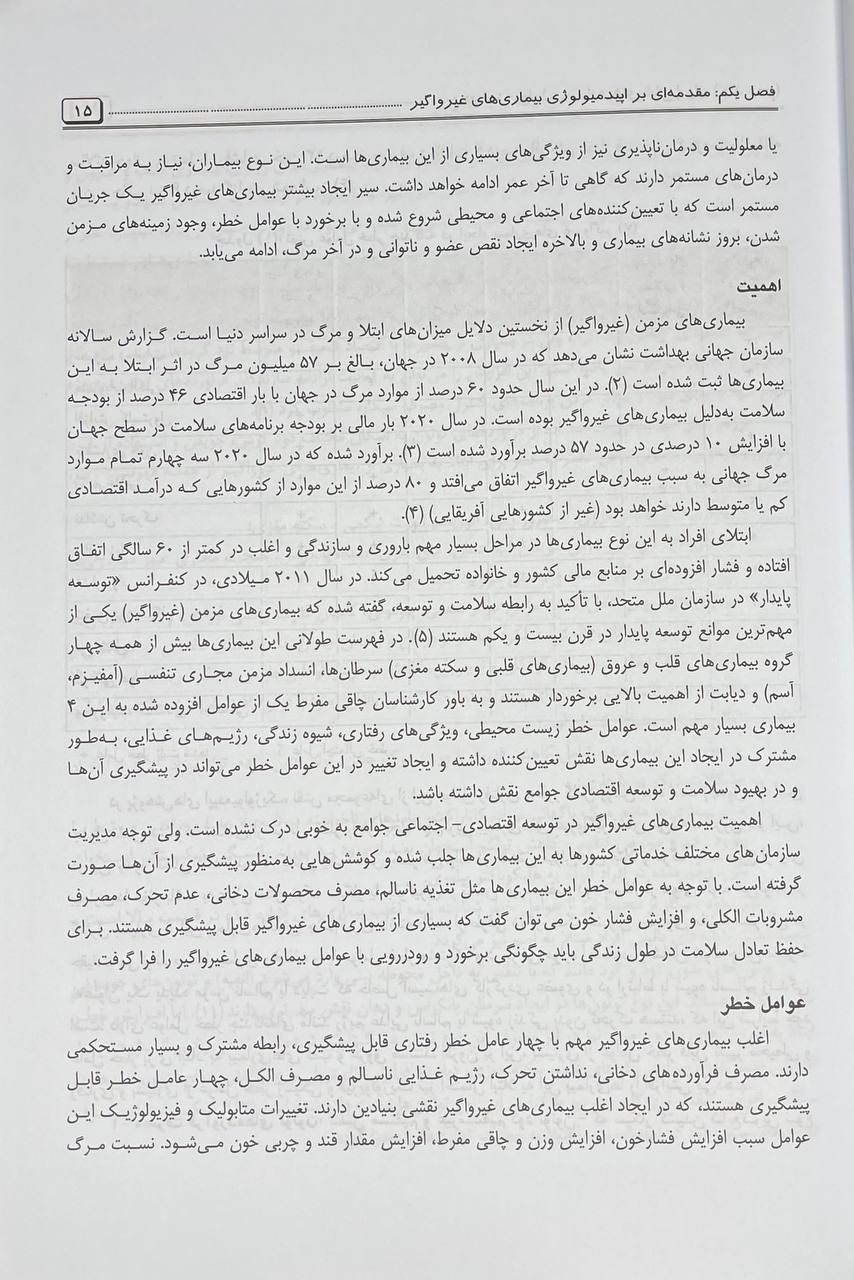 فصل یکم: مقدمه‌ای بر اپیدمیولوژی بیماری‌های غیرواگیر ........................ ۱۵
یا معلولیت و درمان‌ناپذیری نیز از ویژگی‌های بسیاری از این بیماری‌ها است. این نوع بیماران، نیاز به مراقبت و
درمان‌های مستمر دارند که گاهی تا آخر عمر ادامه خواهد داشت. سیر ایجاد بیشتر بیماری‌های غیرواگیر یک جریان
مستمر است که با تعیین‌کننده‌های اجتماعی و محیطی شروع شده و با برخورد با عوامل خطر، وجود زمینه‌های مزمن
شدن، بروز نشانه‌های بیماری و بالاخره ایجاد نقص عضو و ناتوانی و در آخر مرگ، ادامه می‌یابد.
اهمیت
بیماری‌های مزمن (غیرواگیر) از نخستین دلایل میزان‌های ابتلا و مرگ در سراسر دنیا است. گزارش سالانه
سازمان جهانی بهداشت نشان می‌دهد که در سال ۲۰۰۸ در جهان، بالغ بر ۵۷ میلیون مرگ در اثر ابتلا به این
بیماری‌ها ثبت شده است (۲). در این سال حدود ۶۰ درصد از موارد مرگ در جهان با بار اقتصادی ۴۶ درصد از بودجه
سلامت به‌دلیل بیماری‌های غیرواگیر بوده است. در سال ۲۰۲۰ بار مالی بر بودجه برنامه‌های سلامت در سطح جهان
با افزایش ۱۰ درصدی در حدود ۵۷ درصد برآورد شده است (۳). برآورد شده که در سال ۲۰۲۰ سه چهارم تمام موارد
مرگ جهانی به سبب بیماری‌های غیرواگیر اتفاق می‌افتد و ۸۰ درصد از این موارد از کشورهایی که درآمد اقتصادی
کم یا متوسط دارند خواهد بود (غیر از کشورهایی آفریقایی) (۴).
ابتلای افراد به این نوع بیماری‌ها در مراحل بسیار مهم باروری و سازندگی و اغلب در کمتر از ۶۰ سالگی اتفاق
افتاده و فشار افزوده‌ای بر منابع مالی کشور و خانواده تحمیل می‌کند. در سال ۲۰۱۱ میلادی، در کنفرانس «توسعه
پایدار» در سازمان ملل متحد، با تأکید به رابطه سلامت و توسعه، گفته شده که بیماری‌های مزمن (غیرواگیر) یکی از
مهم‌ترین موانع توسعه پایدار در قرن بیست و یکم هستند (۵). در فهرست طولانی این بیماری‌ها بیش از همه چهار
گروه بیماری‌های قلب و عروق (بیماری‌های قلبی و سکته مغزی) سرطان‌ها، انسداد مزمن مجاری تنفسی (آمفیزم،
آسم) و دیابت از اهمیت بالایی برخوردار هستند و به باور کارشناسان چاقی مفرط یک از عوامل افزوده شده به این ۴
بیماری بسیار مهم است. عوامل خطر زیست محیطی، ویژگی‌های رفتاری، شیوه زندگی، رژیم‌های غذایی، به‌طور
مشترک در ایجاد این بیماری‌ها نقش تعیین‌کننده داشته و ایجاد تغییر در این عوامل خطر می‌تواند در پیشگیری آن‌ها
و در بهبود سلامت و توسعه اقتصادی جوامع نقش داشته باشد.
اهمیت بیماری‌های غیرواگیر در توسعه اقتصادی- اجتماعی جوامع به خوبی درک نشده است. ولی توجه مدیریت
سازمان‌های مختلف خدماتی کشورها به این بیماری‌ها جلب شده و کوشش‌هایی به‌منظور پیشگیری از آن‌ها صورت
گرفته است. با توجه به عوامل خطر این بیماری‌ها مثل تغذیه ناسالم، مصرف محصولات دخانی، عدم تحرک، مصرف
مشروبات الکلی، و افزایش فشار خون می‌توان گفت که بسیاری از بیماری‌های غیرواگیر قابل پیشگیری هستند. برای
حفظ تعادل سلامت در طول زندگی باید چگونگی برخورد و رودررویی با عوامل بیماری‌های غیرواگیر را فرا گرفت.
عوامل خطر
اغلب بیماری‌های غیرواگیر مهم با چهار عامل خطر رفتاری قابل پیشگیری، رابطه مشترک و بسیار مستحکمی
دارند. مصرف فرآورده‌های دخانی، نداشتن تحرک، رژیم غذایی ناسالم و مصرف الکل، چهار عامل خطر قابل
پیشگیری هستند، که در ایجاد اغلب بیماری‌های غیرواگیر نقشی بنیادین دارند. تغییرات متابولیک و فیزیولوژیک این
عوامل سبب افزایش فشارخون، افزایش وزن و چاقی مفرط، افزایش مقدار قند و چربی خون می‌شود. نسبت مرگ